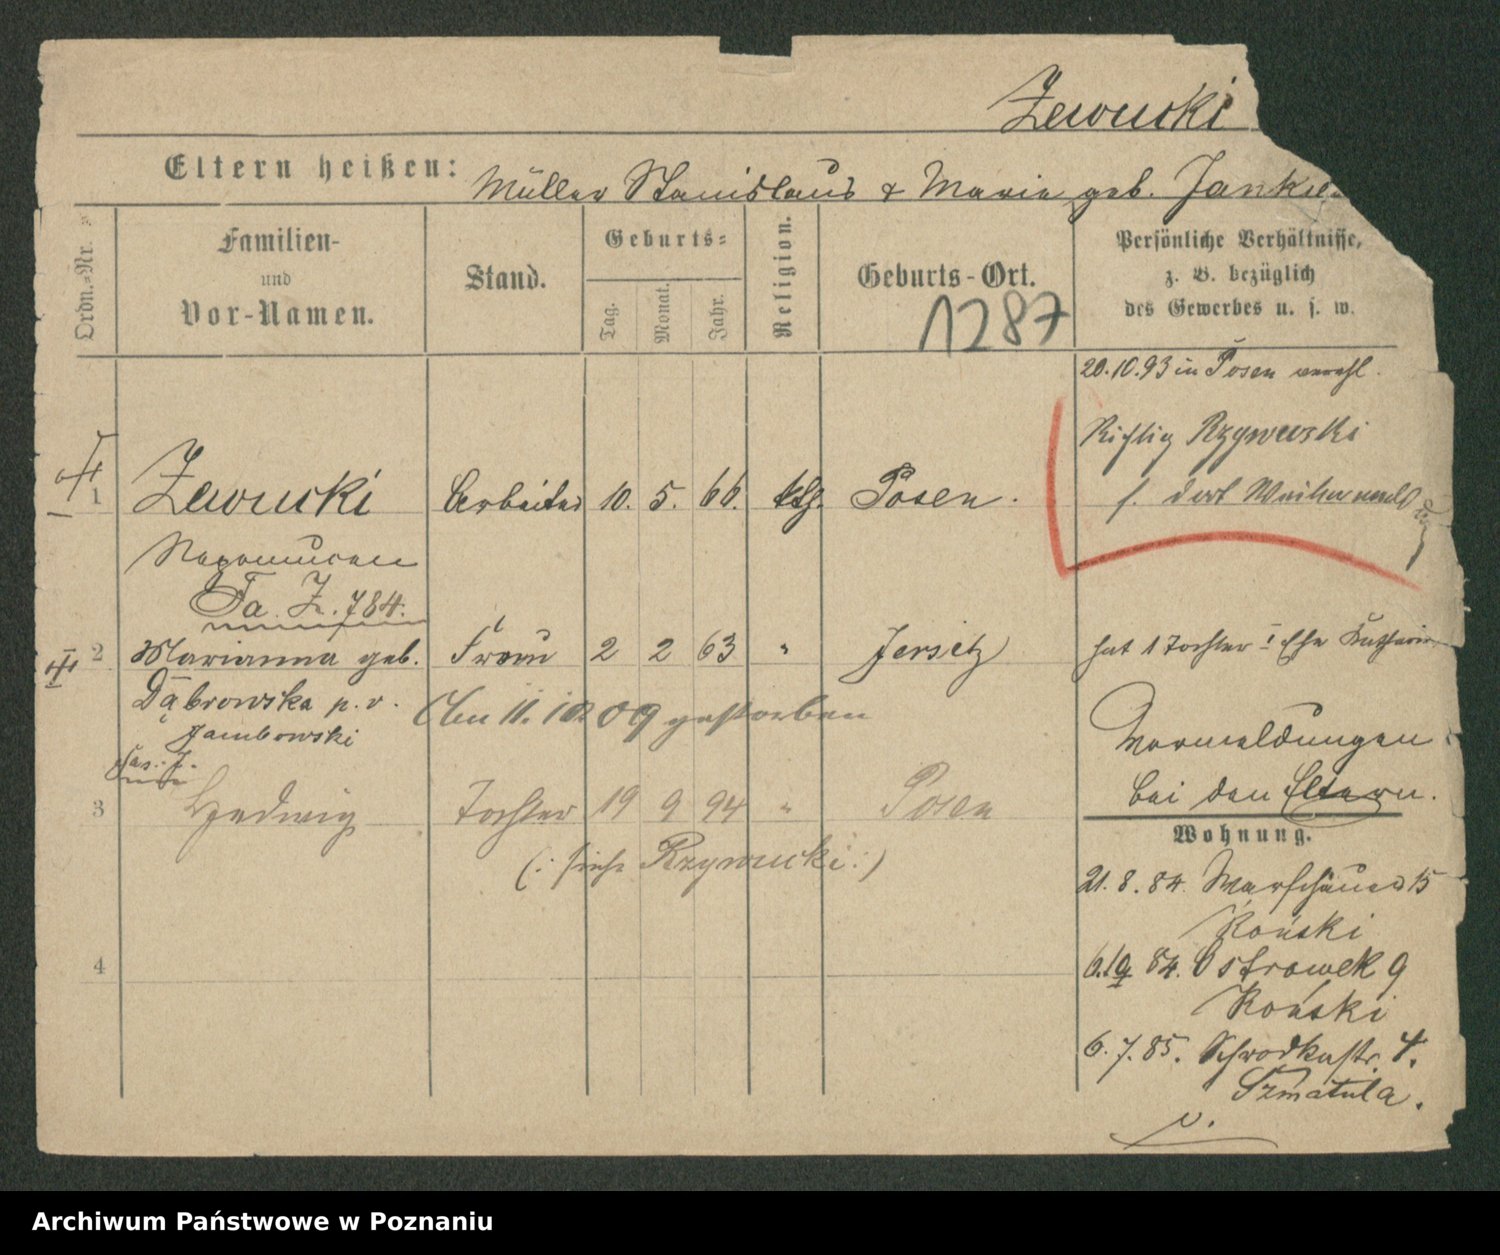 Zewucki
Eltern heißen: Müller Stanislaus & Marie geb. Jank
Ordn.-Nr.
Familien-
und
Vor-Namen.
Stand.
Geburts-
Tag.
Monat.
Jahr.
Religion.
Geburts-Ort.
1287
Persönliche Verhältnisse,
z. B. bezüglich
des Gewerbes u. s. w.
20.10.93 in Posen verehl.
Richtig Rzywucki
s. dort
1 Zewucki Arbeiter 10. 5. 66. ktl. Posen.
Nepomucen
Fa. Z. 784.
2 Marianna geb. Frau 2 2 63 " Jersitz
hat 1 Tochter I Ehe
Dąbrowska p. v.
Jambowski
Am 11. 10 09 gestorben
Vormeldungen
bei den Eltern.
3 Hedwig Tochter 19 9 94 " Posen
(: siehe Rzywucki :)
Wohnung.
21. 8. 84. Warschauer 15
Koński
4
6.10 84. Ostrowek 9
Koński
6. 7. 85. Schrodkastr. 4.
Szmatula.
v.
Archiwum Państwowe w Poznaniu